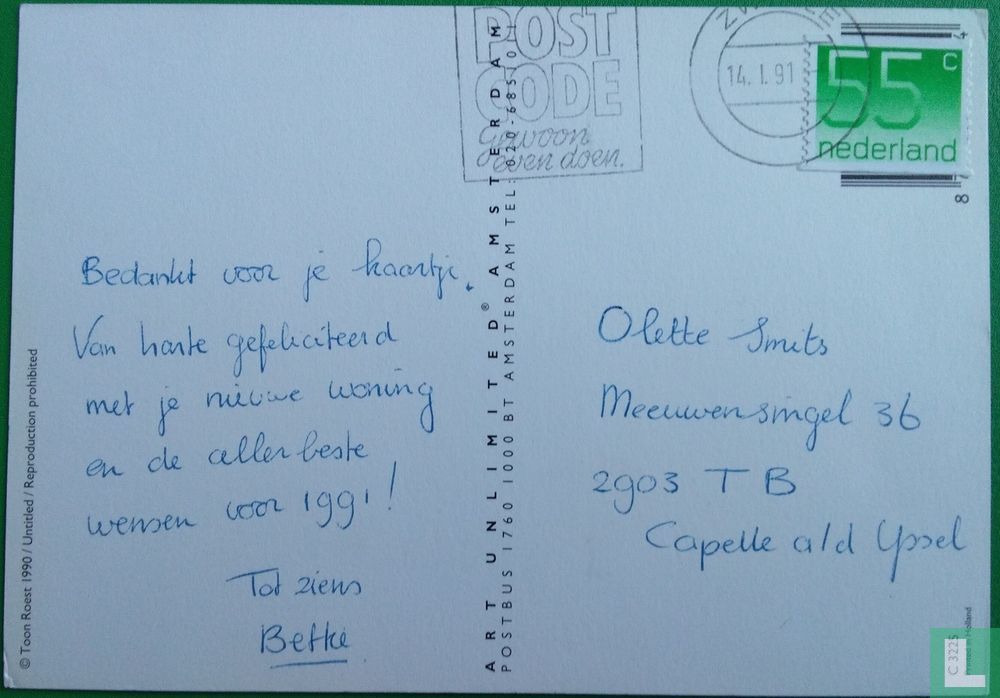 POST
CODE
Gewoon
even doen.
14. I. 91
55 c
nederland
8
Bedankt voor je kaartje.
Van harte gefeliciteerd
met je nieuwe woning
en de allerbeste
wensen voor 1991!
Tot ziens
Betkie
Olette Smits
Meeuwensingel 36
2903 TB
Capelle a/d Yssel
© Toon Roest 1990 / Untitled / Reproduction prohibited
ART UNLIMITED® AMSTERDAM
POSTBUS 1760 1000 BT AMSTERDAM TEL: 020-685
C 3225
Printed in Holland